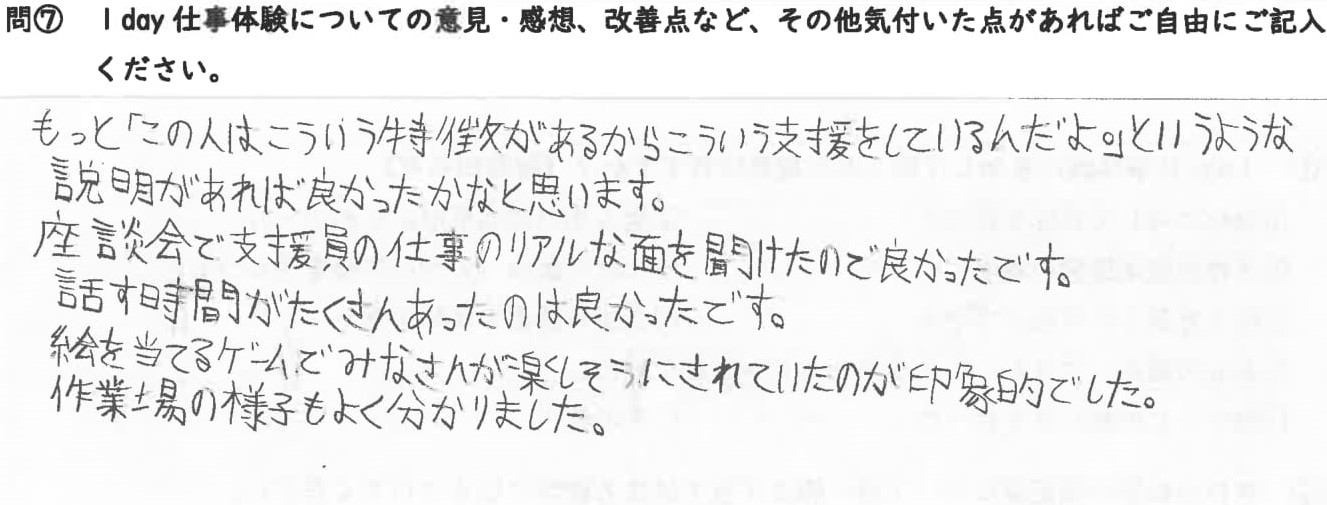 問⑦ 1 day 仕事体験についての意見・感想、改善点など、その他気付いた点があればご自由にご記入
ください。
もっと「この人はこういう特徴があるからこういう支援をしているんだよ。」というような
説明があれば良かったかなと思います。
座談会で支援員の仕事のリアルな面を聞けたので良かったです。
話す時間がたくさんあったのは良かったです。
絵を当てるゲームでみなさんが楽しそうにされていたのが印象的でした。
作業場の様子もよく分かりました。